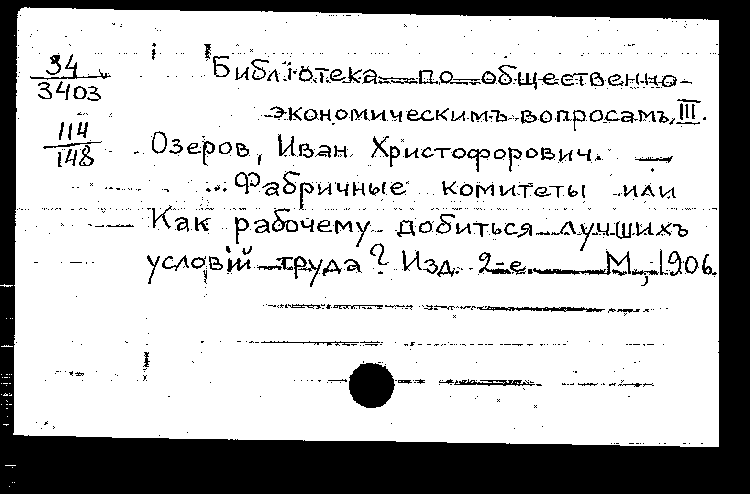 34
3403
Библіотека по общественно-
экономическимъ вопросамъ, III.
114
148
Озеров, Иван Христофорович. —
...Фабричные комитеты или
Как рабочему добиться лучшихъ
условій труда? Изд. 2-е. М., 1906.